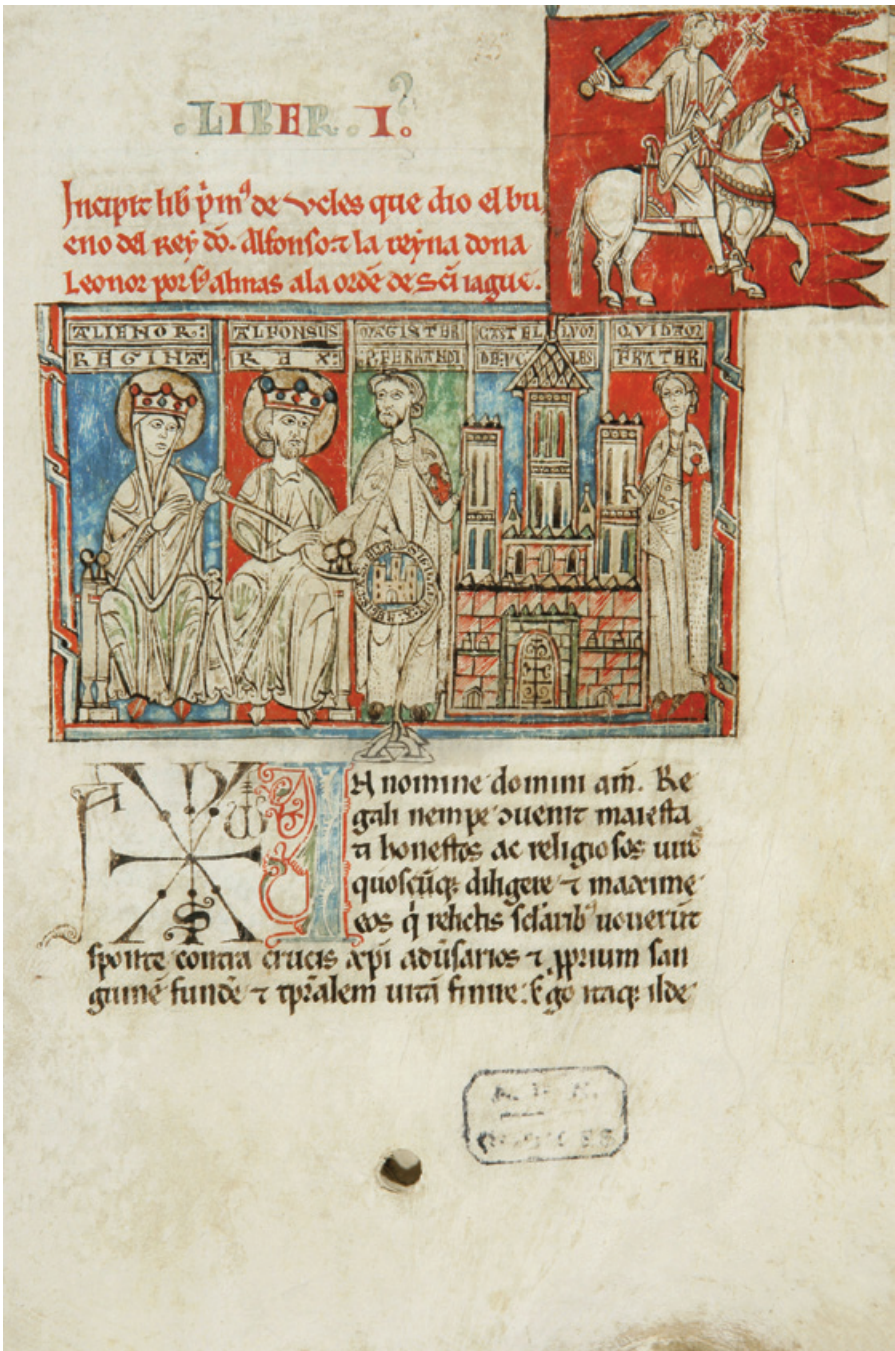 .LIBER.I.
Incipit lib p̄m⁹ de vcles que dio el bu
eno del Rey dō. Alfonso ⁊ la reyna dona
Leonor por s̄ almas ala ordē de Sc̄i iague.
ALIENOR: ALFONSUS MAGISTER CASTELLVM QVIDAM
REGINA: REX: P. FERRANDI DE VCLES FRATER
IN nomine domini am̄. Re
gali nempe ɔuenit maiesta
ti honestos ac religiosos uiros
quoscūq; diligere ⁊ maxime
eos q̇ relictis sclārib⁹ uouerūt
sponte contra crucis xp̄i adūsarios ⁊ ꝓprium san
guinē fundē ⁊ tp̄ralem uitā finire. Ego itaq; ilde